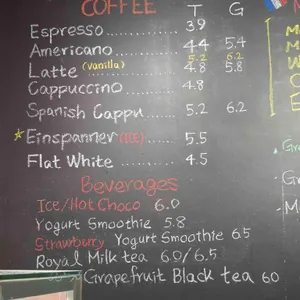 COFFEE T G
Espresso ............ 3.9
Americano ......... 4.4 5.4
5.2 6.2
Latte (vanilla) ....... 4.8 5.8
Cappuccino ........ 4.8
Spanish Cappu.... 5.2 6.2
★ Einspanner (ICE) .... 5.5
Flat White .......... 4.5
Beverages
Ice/Hot Choco 6.0
Yogurt Smoothie 5.8
Strawberry Yogurt Smoothie 6.5
Royal Milk tea 6.0/6.5
Grapefruit Black tea 6.0